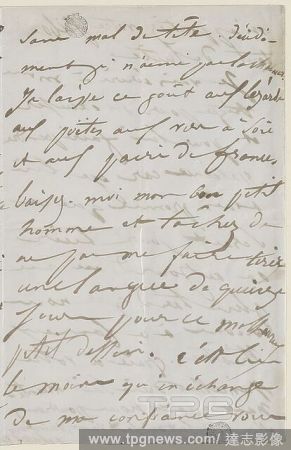 sans mal de tête. décidé-
ment je n'aime pas la chaleur
Je laisse ce goût aux lézards
aux poètes aux vers à soie
et aux pairs de france,
baisez-moi mon bon petit
homme et tâchez de
ne pas me faire tirer
une langue de quinze
jours pour ce malheureux
petit dessin. c'est bien
le moins qu'en échange
de ma confiance vous
TPG
www.tpgnews.com/ 達志影像